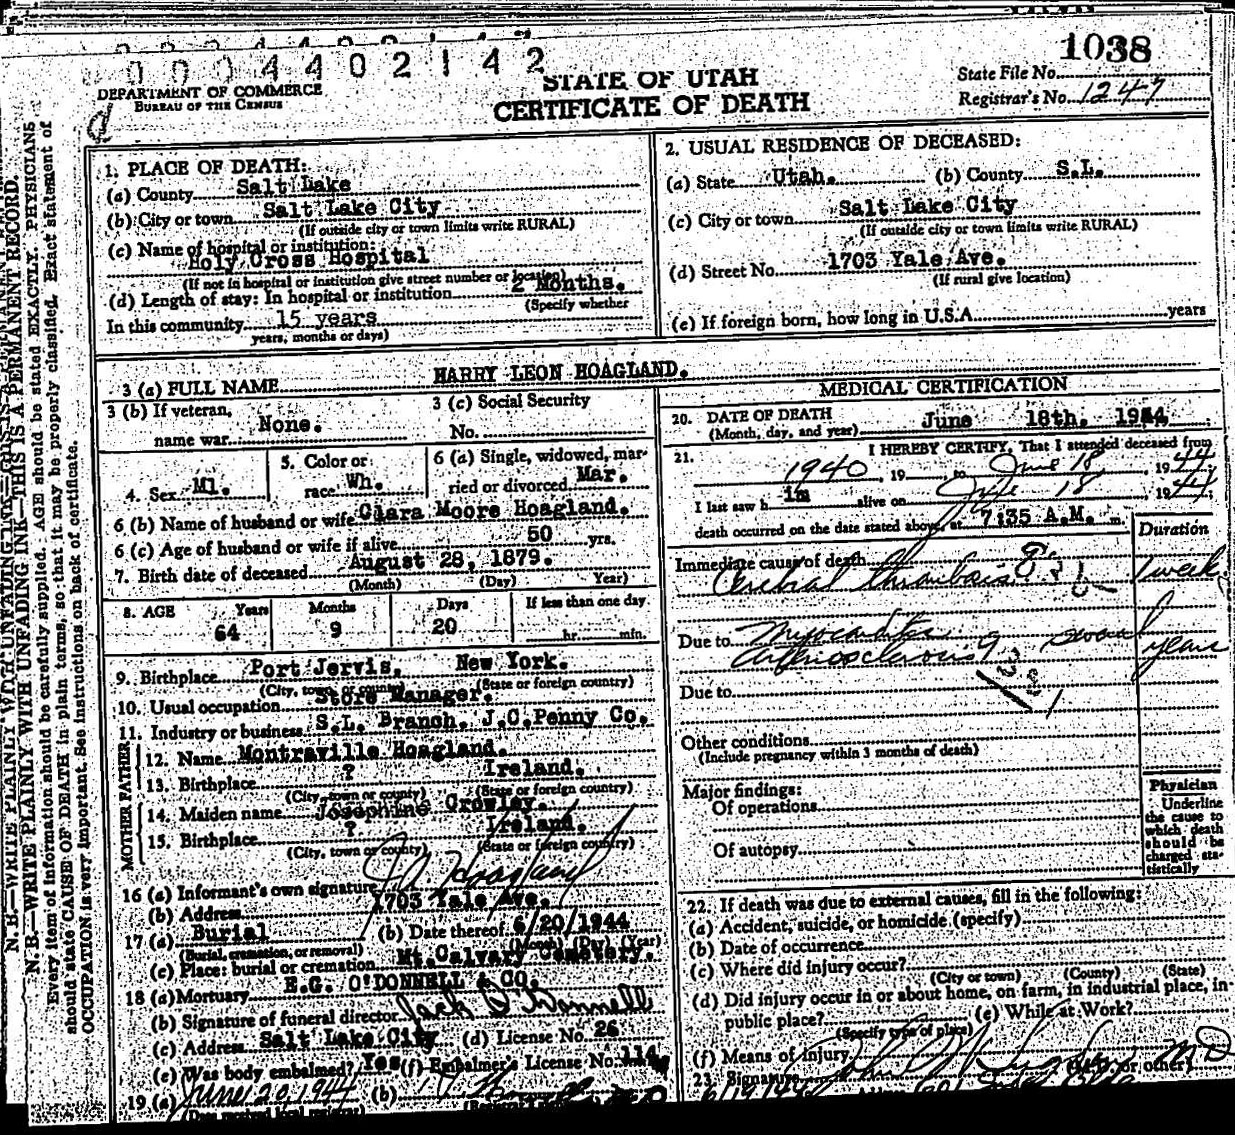 0004402142
1038
STATE OF UTAH
CERTIFICATE OF DEATH
DEPARTMENT OF COMMERCE
BUREAU OF THE CENSUS
State File No.
Registrar's No. 1247
N. B.—WRITE PLAINLY WITH UNFADING INK—THIS IS A PERMANENT RECORD.
Every item of information should be carefully supplied. AGE should be stated EXACTLY. PHYSICIANS
should state CAUSE OF DEATH in plain terms, so that it may be properly classified. Exact statement of
OCCUPATION is very important. See instructions on back of certificate.
1. PLACE OF DEATH:
(a) County Salt Lake
(b) City or town Salt Lake City
(If outside city or town limits write RURAL)
(c) Name of hospital or institution:
Holy Cross Hospital
(If not in hospital or institution give street number or location)
(d) Length of stay: In hospital or institution 2 Months.
(Specify whether
In this community 15 years
years, months or days)
2. USUAL RESIDENCE OF DECEASED:
(a) State Utah. (b) County S.L.
(c) City or town Salt Lake City
(If outside city or town limits write RURAL)
(d) Street No. 1703 Yale Ave.
(If rural give location)
(e) If foreign born, how long in U.S.A. years
3 (a) FULL NAME HARRY LEON HOAGLAND.
3 (b) If veteran,
name war None.
3 (c) Social Security
No.
4. Sex Ml.
5. Color or
race Wh.
6 (a) Single, widowed, mar-
ried or divorced Mar.
6 (b) Name of husband or wife Clara Moore Hoagland.
6 (c) Age of husband or wife if alive 50 yrs.
7. Birth date of deceased August 28, 1879.
(Month) (Day) Year)
8. AGE Years Months Days If less than one day
64 9 20 hr. min.
9. Birthplace Port Jervis, New York.
(City, town or county) (State or foreign country)
10. Usual occupation Store Manager.
11. Industry or business S.L. Branch, J.C.Penny Co.
FATHER
12. Name Montraville Hoagland.
13. Birthplace ? Ireland.
(City, town or county) (State or foreign country)
MOTHER
14. Maiden name Josephine Crowley.
15. Birthplace ? Ireland.
(City, town or county) (State or foreign country)
16 (a) Informant's own signature Hoagland
(b) Address 1703 Yale Ave.
17 (a) Burial (b) Date thereof 6/20/1944
(Burial, cremation, or removal) (Month) (Day) (Year)
(c) Place: burial or cremation Mt.Calvary Cemetery.
18 (a) Mortuary E.G. O'DONNELL & CO.
(b) Signature of funeral director Jack O'Donnell
(c) Address Salt Lake City (d) License No. 26
(e) Was body embalmed? Yes (f) Embalmer's License No. 114
19 (a) June 20 1944 (b)
(Date received local registrar)
MEDICAL CERTIFICATION
20. DATE OF DEATH June 18th. 1944
(Month, day, and year)
21. I HEREBY CERTIFY, That I attended deceased from
1940, 19 to June 18, 1944
I last saw h im alive on June 18 1944;
death occurred on the date stated above, at 7:35 A.M. m.
Duration
Immediate cause of death
Cerebral thrombosis 1 week
Due to Myocarditis
Arteriosclerosis several years
Due to
Other conditions
(Include pregnancy within 3 months of death)
Major findings:
Of operations
Of autopsy
Physician
Underline
the cause to
which death
should be
charged sta-
tistically
22. If death was due to external causes, fill in the following:
(a) Accident, suicide, or homicide (specify)
(b) Date of occurrence
(c) Where did injury occur?
(City or town) (County) (State)
(d) Did injury occur in or about home, on farm, in industrial place, in
public place? (e) While at Work?
(Specify type of place)
(f) Means of injury
23. Signature John MD
(M.D. or other)
6/19/1944